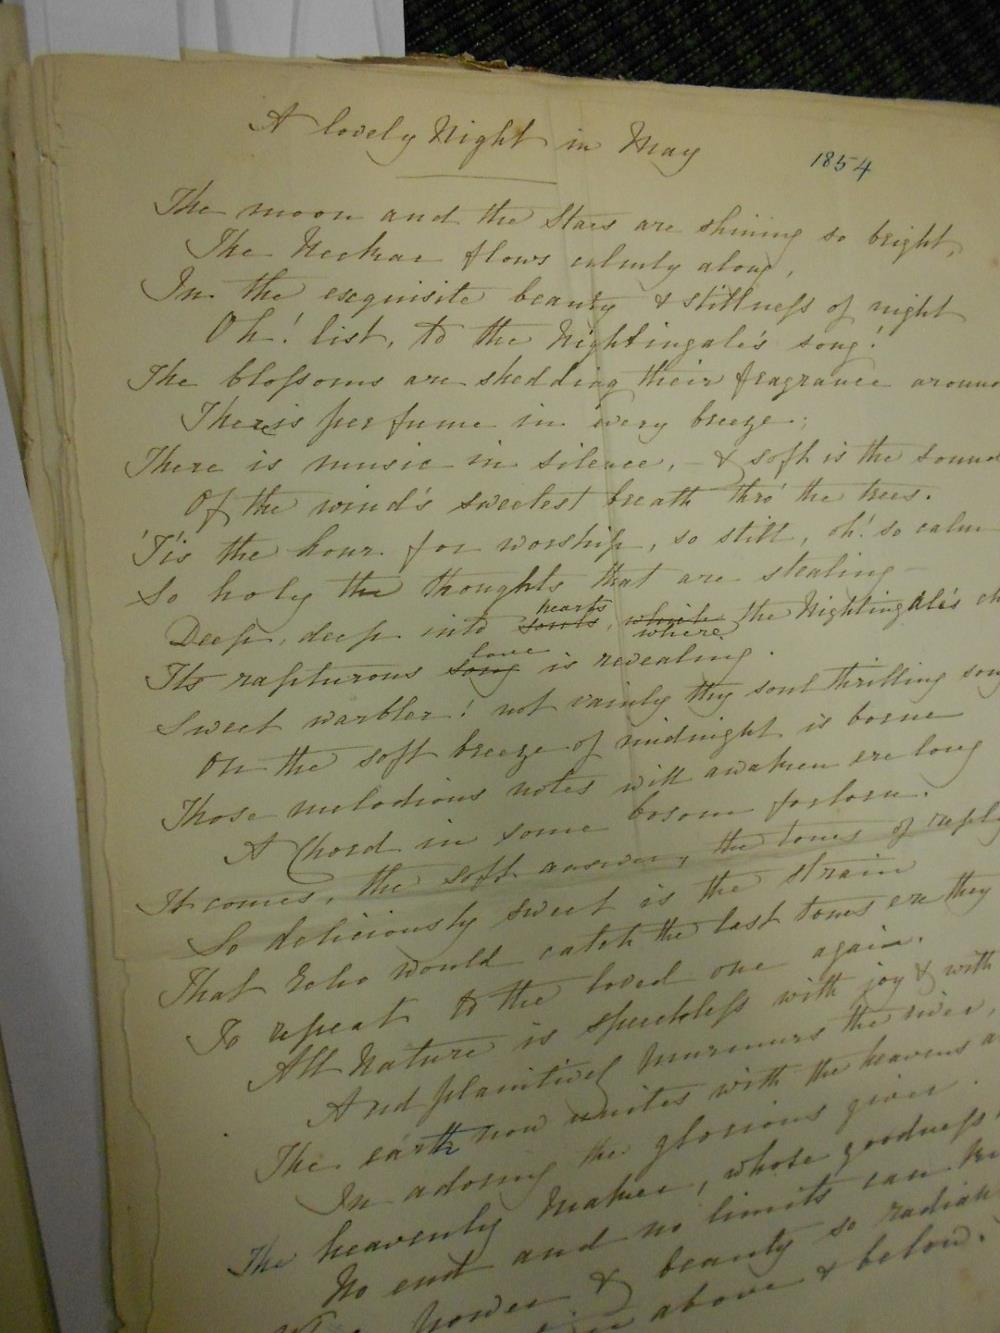 A lovely Night in May
1854
The moon and the Stars are shining so bright,
The Neckar flows calmly along,
In the exquisite beauty & stillness of night
Oh! list, to the Nightingale's song!
The blossoms are shedding their fragrance around
There is perfume in every breeze;
There is music in silence, – & soft is the sound
Of the wind's sweetest breath thro' the trees.
'Tis the hour for worship, so still, oh! so calm
So holy the thoughts that are stealing –
Deep, deep into souls hearts, while where the Nightingale's
Its rapturous song love is revealing.
Sweet warbler! not vainly thy soul thrilling song
On the soft breeze of midnight is borne
Those melodious notes will awaken ere long
A Chord in some bosom forlorn.
It comes, the soft answer, the tones of reply
So deliciously sweet is the strain
That Echo would catch the last tones ere they
To repeat to the loved one again.
All Nature is speechless with joy & with
And plaintively murmurs the river,
The earth now unites with the heavens
In adoring the glorious giver.
The heavenly Maker, whose goodness
No end and no limits can
power & beauty so radiant
above & below.